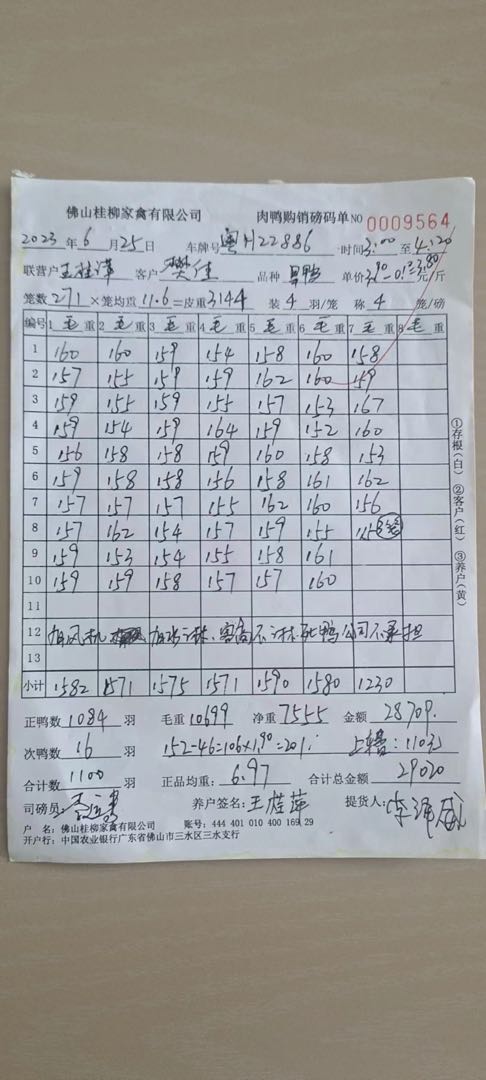 佛山桂柳家禽有限公司 肉鸭购销磅码单 NO 0009564
2023 年 6 月 25 日 车牌号 粤H22886 时间 3:00 至 4:20
联营户 王桂萍 客户 樊佳 品种 单价 3.90-0.1=3.80 元/斤
笼数 271 ×笼均重 11.6 =皮重 3144 装 4 羽/笼 称 4 笼/磅
编号 1 毛 重 2 毛 重 3 毛 重 4 毛 重 5 毛 重 6 毛 重 7 毛 重 8 毛 重
1 160 160 159 154 158 160 158
2 157 155 159 159 162 160 159
3 159 155 159 155 157 153 167
4 159 154 159 164 159 152 160
5 156 158 158 159 160 158 153
6 159 158 158 156 158 161 162
7 157 157 157 155 162 160 156
8 157 162 154 157 159 155
9 159 153 154 155 158 161
10 159 159 158 157 157 160
11
12 加风机 加水淋、客商不淋死鸭公司不承担
13
小计 1582 1571 1575 1571 1590 1580 1230
正鸭数 1084 羽 毛重 10699 净重 7555 金额 28709.
次鸭数 16 羽 152-46=106×1.90=201. 上车费:110元
合计数 1100 羽 正品均重: 6.97 合计总金额 29020
司磅员: 养户签名: 王桂萍 提货人:
户 名: 佛山桂柳家禽有限公司 账号: 444 401 010 400 169 29
开户行: 中国农业银行广东省佛山市三水区三水支行
①存根(白) ②客户(红) ③养户(黄)